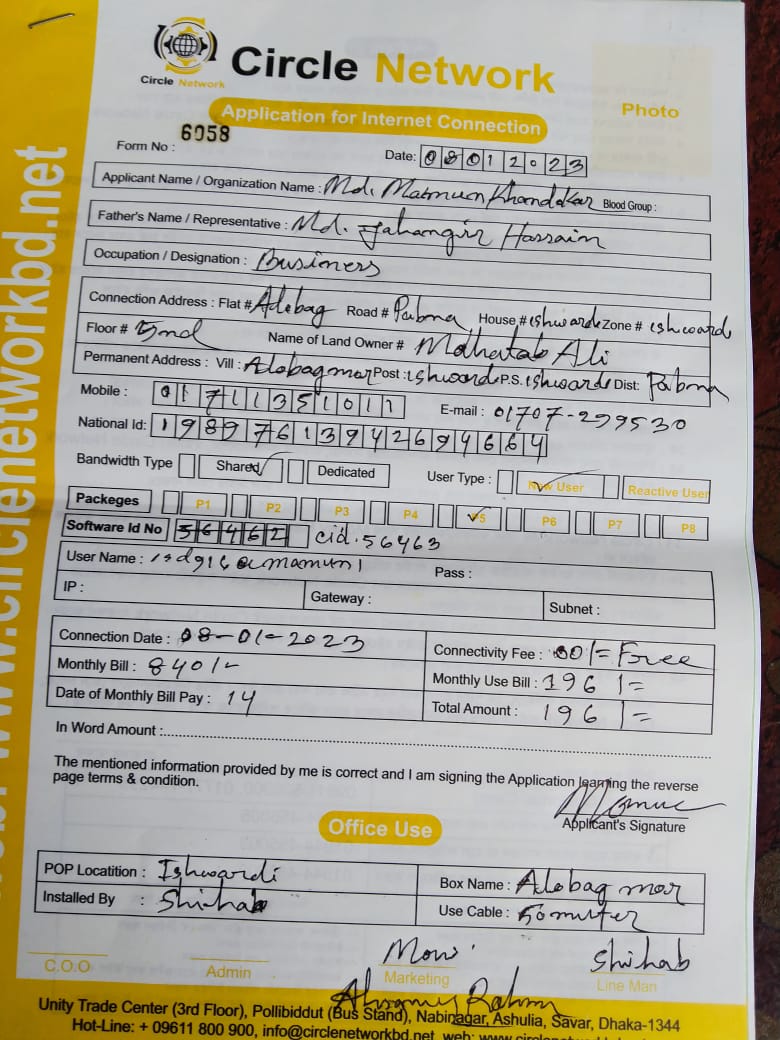 www.circlenetworkbd.net
Circle Network
Circle Network
Photo
Application for Internet Connection
6058
Form No :
Date: 08012023
Applicant Name / Organization Name : Md. Mamun Khandakar Blood Group :
Father's Name / Representative : Md. Jahangir Hossain
Occupation / Designation : Business
Connection Address : Flat # Alobag Road # Pabna House # ishwardi Zone # ishward
Floor # 2nd Name of Land Owner # Mahatab Ali
Permanent Address : Vill : Alobag mor Post : ishwardi P.S. ishwardi Dist: Pabna
Mobile : 01711351011 E-mail : 01707-299530
National Id: 19897613942694664
Bandwidth Type Shared Dedicated User Type : New User Reactive User
Packeges P1 P2 P3 P4 P5 P6 P7 P8
Software Id No 56462 cid. 56463
User Name : Pass :
IP : Gateway : Subnet :
Connection Date : 08-01-2023 Connectivity Fee : /= Free
Monthly Bill : 840/- Monthly Use Bill : 196 /=
Date of Monthly Bill Pay : 14 Total Amount : 196 /=
In Word Amount :
The mentioned information provided by me is correct and I am signing the Application learning the reverse
page terms & condition.
Applicant's Signature
Office Use
POP Locatition : Ishwardi Box Name : Alobag mor
Installed By : Shihab Use Cable : 50 miter
Shihab
C.O.O Admin Marketing Line Man
Unity Trade Center (3rd Floor), Pollibiddut (Bus Stand), Nabinagar, Ashulia, Savar, Dhaka-1344
Hot-Line: + 09611 800 900, info@circlenetworkbd.net, web: